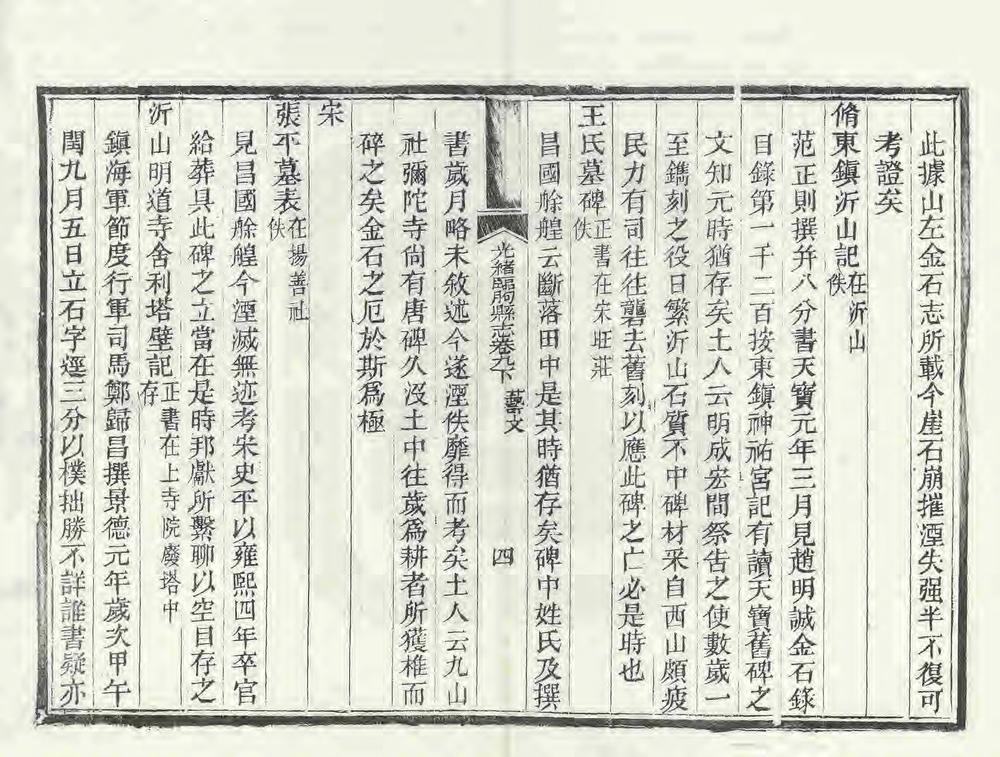 此據山左金石志所載今崖石崩摧湮失强半不復可
考證矣
脩東鎭沂山記在沂山佚
范正則撰幷八分書天寶元年三月見趙明誠金石錄
目錄第一千二百按東鎭神祐宮記有讀天寶舊碑之
文知元時猶存矣土人云明成宏間祭告之使數歲一
至鐫刻之役日繁沂山石質不中碑材采自西山頗疲
民力有司往往礱去舊刻以應此碑之亡必是時也
王氏墓碑正書在宋旺莊佚
昌國艅艎云斷落田中是其時猶存矣碑中姓氏及撰
光緖臨朐縣志卷九下 藝文 四
書歲月略未敘述今遂湮佚靡得而考矣土人云九山
社彌陀寺尙有唐碑久沒土中往歲爲耕者所獲椎而
碎之矣金石之厄於斯爲極
宋
張平墓表在揚善社佚
見昌國艅艎今湮滅無迹考宋史平以雍熙四年卒官
給葬具此碑之立當在是時邦獻所繫聊以空目存之
沂山明道寺舍利塔壁記正書在上寺院廢塔中存
鎭海軍節度行軍司馬鄭歸昌撰景德元年歲次甲午
閏九月五日立石字逕三分以樸拙勝不詳誰書疑亦